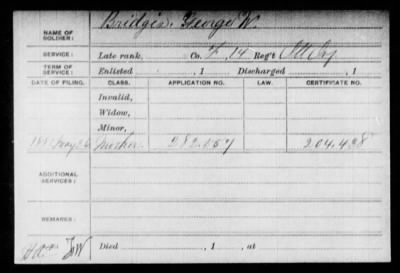 NAME OF SOLDIER: Bridges, George W.
SERVICE: Late rank, Co. F, 14 Reg't
TERM OF SERVICE: Enlisted , 1 Discharged , 1
DATE OF FILING. CLASS. APPLICATION NO. LAW. CERTIFICATE NO.
Invalid,
Widow,
Minor,
May 26 Mother 282.157 204.428
ADDITIONAL SERVICES:
REMARKS:
Died , 1 , at